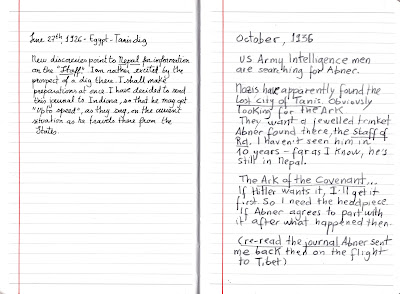 June 27th 1926 - Egypt - Tanis dig
New discoveries point to Nepal for information
on the "Staff". I am rather excited by the
prospect of a dig there. I shall make
preparations at once. I have decided to send
this journal to Indiana, so that he may get
"up to speed", as they say, on the current
situation as he travels there from the
States.
October, 1936
US Army Intelligence men
are searching for Abner.
Nazis have apparently found the
lost city of Tanis. Obviously
looking for the Ark
They want a jewelled trinket
Abner found there, the Staff of
Ra. I haven't seen him in
10 years - far as I know, he's
still in Nepal.
The Ark of the Covenant...
If Hitler wants it, I'll get it
first. So I need the headpiece.
If Abner agrees to part with
it after what happened then.
(re-read the journal Abner sent
me back then on the flight
to Tibet)